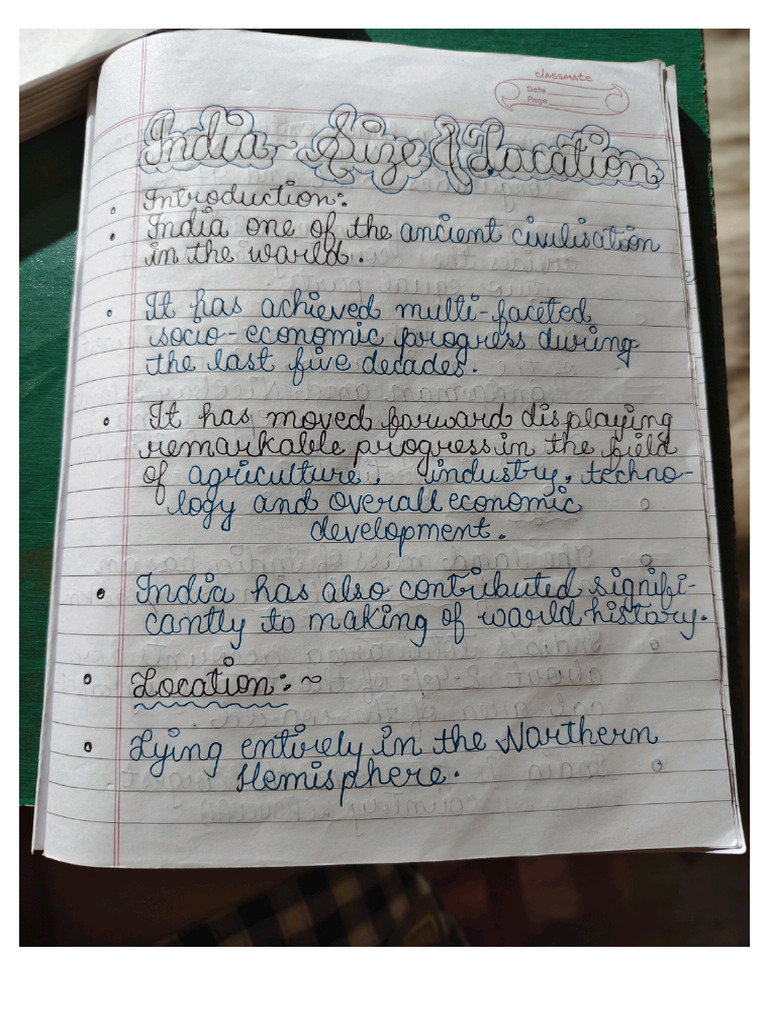 classmate
Date
Page
India ~ Size & Location
Introduction:
India one of the ancient civilisation
in the world.
It has achieved multi-faceted
socio-economic progress during
the last five decades.
It has moved forward displaying
remarkable progress in the field
of agriculture, industry, techno-
logy and overall economic
development.
India has also contributed signifi-
cantly to making of world history.
Location: ~
Lying entirely in the Northern
Hemisphere.